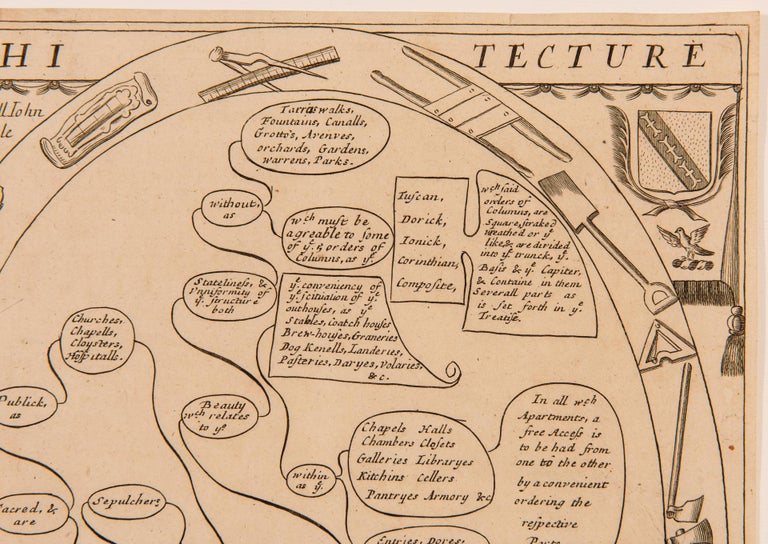 HI TECTURE
John
le
Tarraswalks,
Fountains, Canalls,
Grotto's, Avenves,
orchards, Gardens,
warrens, Parks.
without,
as
wch must be
agreable to some
of ye 5 orders of
Columns, as ye
Tuscan,
Dorick,
Ionick,
Corinthian,
Composite,
wch said
orders of
Columns, are
Square, straked
wreathed or ye
like, & are divided
into ye trunck, ye
Basis & ye Capiter,
& Containe in them
Severall parts as
is set forth in ye
Treatise.
Stateliness, &
Vniformity of
ye structure
both
ye conveniency of
ye scituation of ye
outhouses, as ye
Stables, Coatch houses
Brew-houses, Graneries
Dog Kenells, Landeries,
Pasteries, Daryes, Volaries,
&c.
Churches,
Chapells,
Cloysters,
Hospitalls.
Publick,
as
Beauty
wch relates
to ye
within
as ye
Chapels Halls
Chambers Closets
Galleries Libraryes
Kitchins Cellers
Pantryes Armory &c
In all wch
Apartments, a
free Access is
to be had from
one to the other
by a convenient
ordering the
respective
Parts
Sacred, &
are
Sepulchers
Entries, Dores,